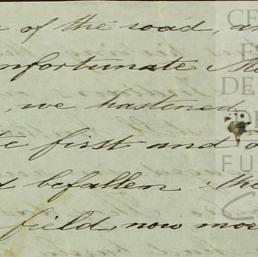 of the road, a
nfortunate Me
, we hastened
te first and o
d befallen the
field, now mo
CE
E
DE
FU
C